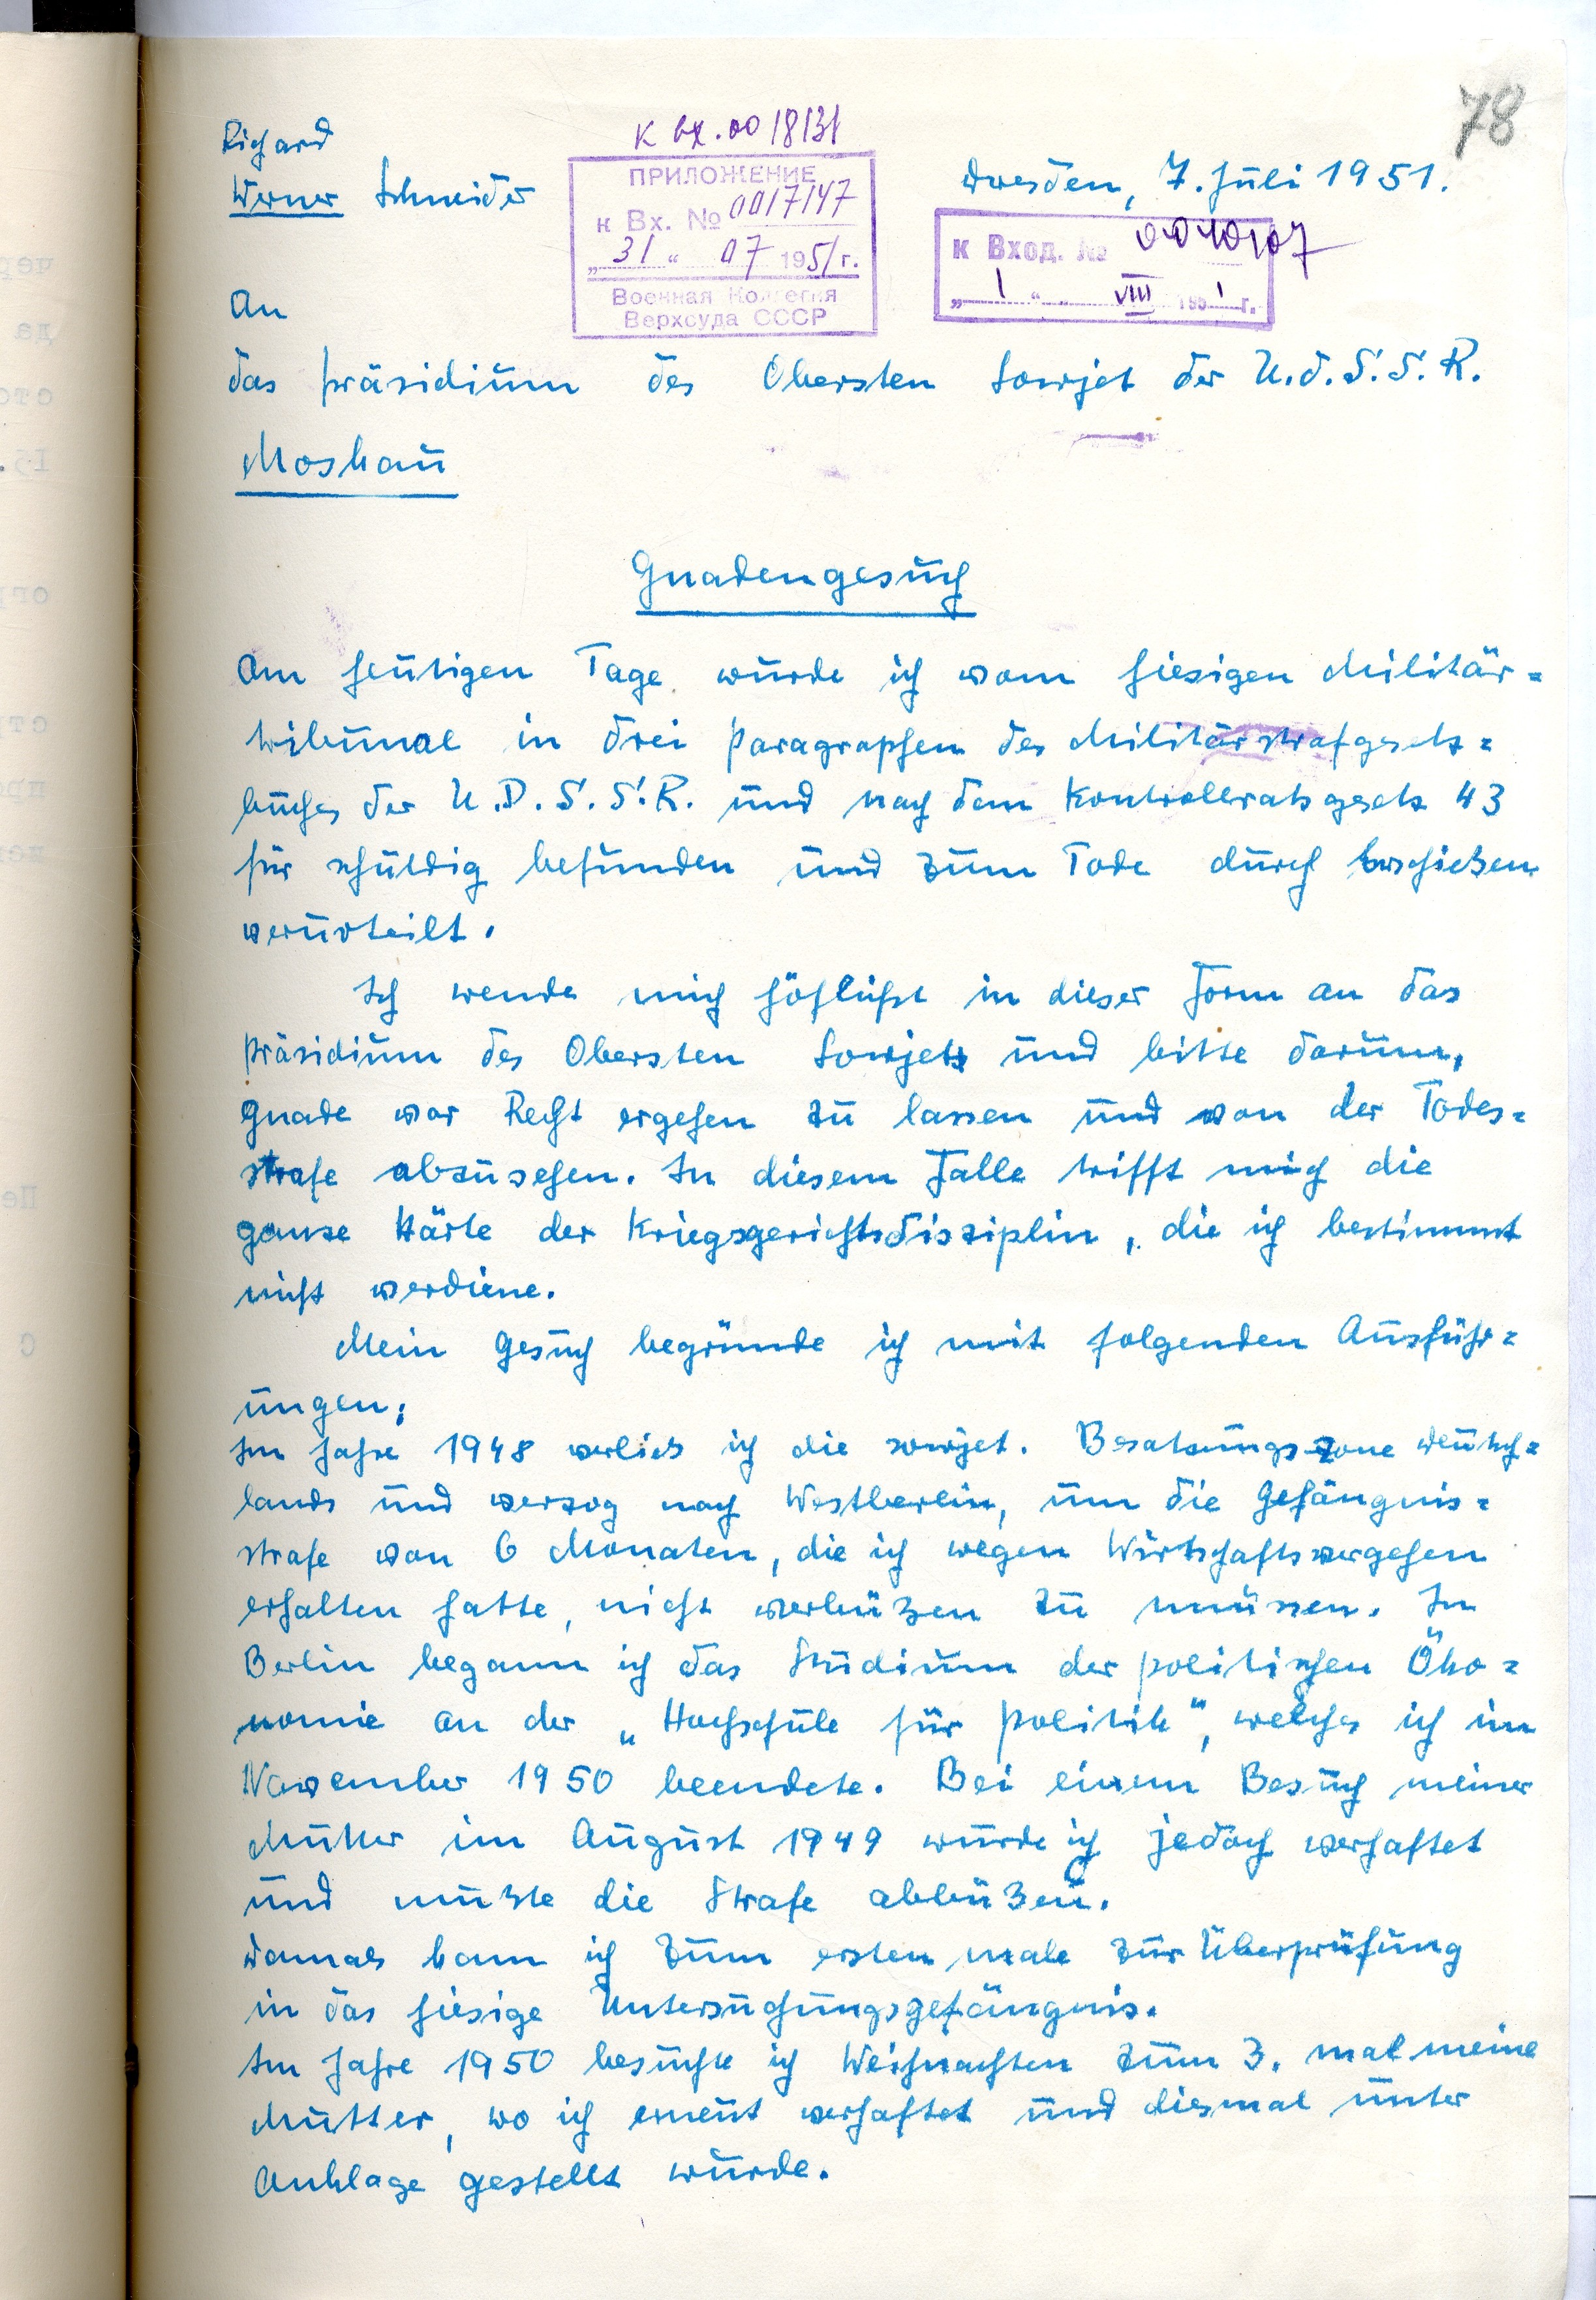 78
к вх. 0018131
Richard
Werner Schneider
ПРИЛОЖЕНИЕ
к Вх. № 0017147
„31“ 07 1951 г.
Военная Коллегия
Верхсуда СССР
Dresden, 7. Juli 1951.
к Вход. №
„1“ VIII 1951 г.
An
das Präsidium des Obersten Sowjet der U.d.S.S.R.
Moskau
Gnadengesuch
Am heutigen Tage wurde ich vom hiesigen Militär=
tribunal in drei Paragraphen des Militärstrafgesetz=
buches der U.D.S.S.R. und nach dem Kontrollratsgesetz 43
für schuldig befunden und zum Tode durch Erschießen
verurteilt.
Ich wende mich höflichst in dieser Form an das
Präsidium des Obersten Sowjets und bitte darum,
Gnade vor Recht ergehen zu lassen und von der Todes=
strafe abzusehen. In diesem Falle trifft mich die
ganze Härte der Kriegsgerichtsdisziplin, die ich bestimmt
nicht verdiene.
Mein Gesuch begründe ich mit folgenden Ausführ=
ungen:
Im Jahre 1948 verließ ich die sowjet. Besatzungszone Deutsch=
lands und verzog nach Westberlin, um die Gefängnis=
strafe von 6 Monaten, die ich wegen Wirtschaftsvergehen
erhalten hatte, nicht verbüßen zu müssen. In
Berlin begann ich das Studium der politischen Öko=
nomie an der „Hochschule für Politik“, welches ich im
November 1950 beendete. Bei einem Besuch meiner
Mutter im August 1949 wurde ich jedoch verhaftet
und mußte die Strafe abbüßen.
Damals kam ich zum ersten male zur Überprüfung
in das hiesige Untersuchungsgefängnis.
Im Jahre 1950 besuchte ich Weihnachten zum 3. mal meine
Mutter, wo ich erneut verhaftet und diesmal unter
Anklage gestellt wurde.